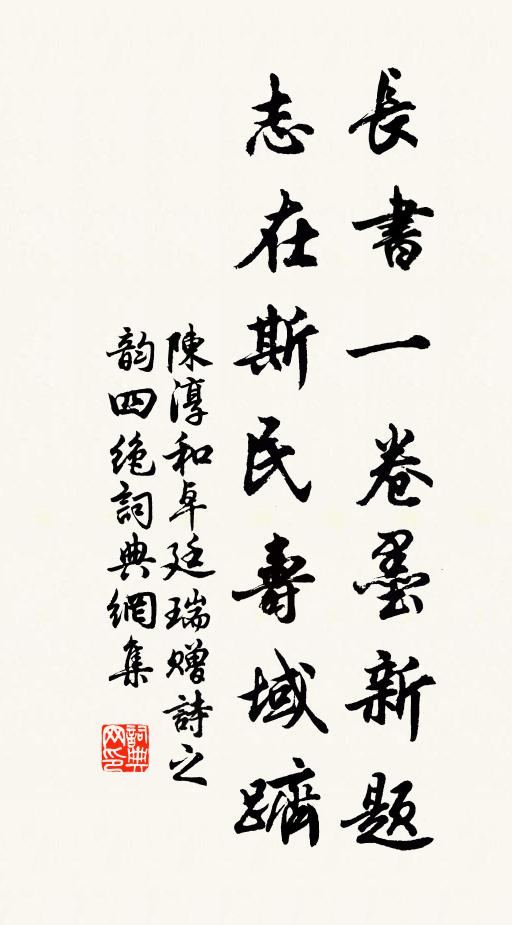 長書一卷墨新題
志在斯民壽域躋
陳淳和卓廷瑞贈詩之
韵四絶詞典網集
詞典网印